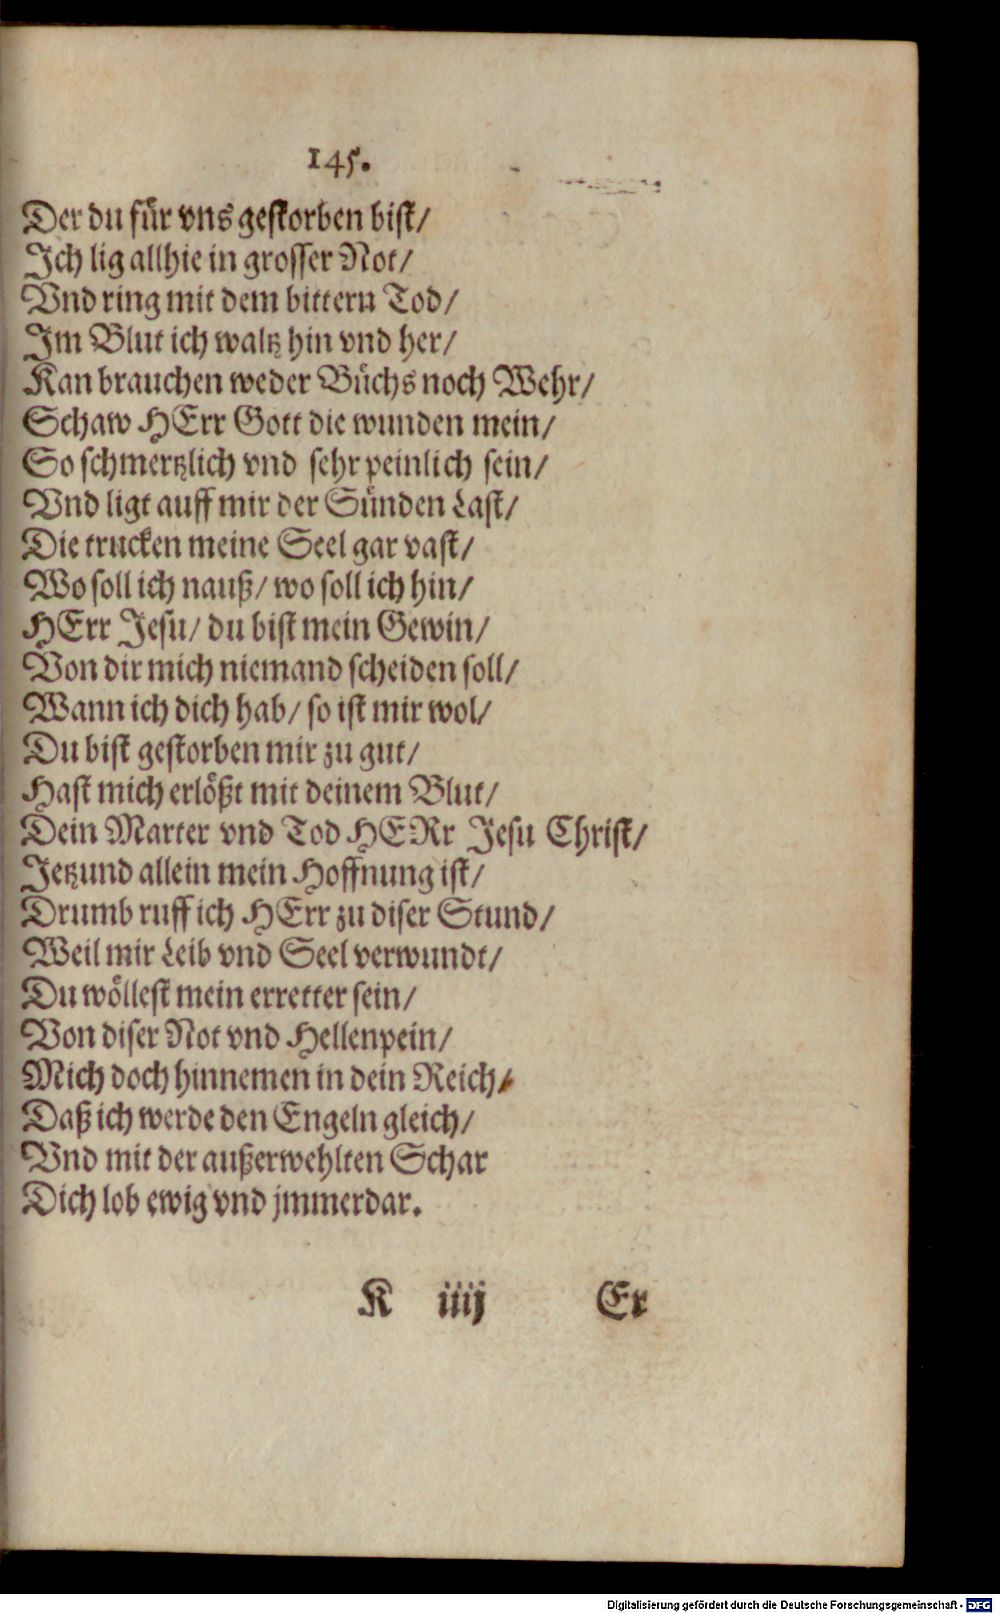 145.
Der du für vns gestorben bist/
Ich lig allhie in grosser Not/
Vnd ring mit dem bittern Tod/
Im Blut ich waltz hin vnd her/
Kan brauchen weder Büchs noch Wehr/
Schaw HErr Gott die wunden mein/
So schmertzlich vnd sehr peinlich sein/
Vnd ligt auff mir der Sünden Last/
Die trucken meine Seel gar vast/
Wo soll ich nauß/ wo soll ich hin/
HErr Jesu/ du bist mein Gewin/
Von dir mich niemand scheiden soll/
Wann ich dich hab/ so ist mir wol/
Du bist gestorben mir zu gut/
Hast mich erlößt mit deinem Blut/
Dein Marter vnd Tod HERr Jesu Christ/
Jetzund allein mein Hoffnung ist/
Drumb ruff ich HErr zu diser Stund/
Weil mir Leib vnd Seel verwundt/
Du wöllest mein erretter sein/
Von diser Not vnd Hellenpein/
Mich doch hinnemen in dein Reich/
Daß ich werde den Engeln gleich/
Vnd mit der außerwehlten Schar
Dich lob ewig vnd jmmerdar.
K iiij Er
Digitalisierung gefördert durch die Deutsche Forschungsgemeinschaft - DFG